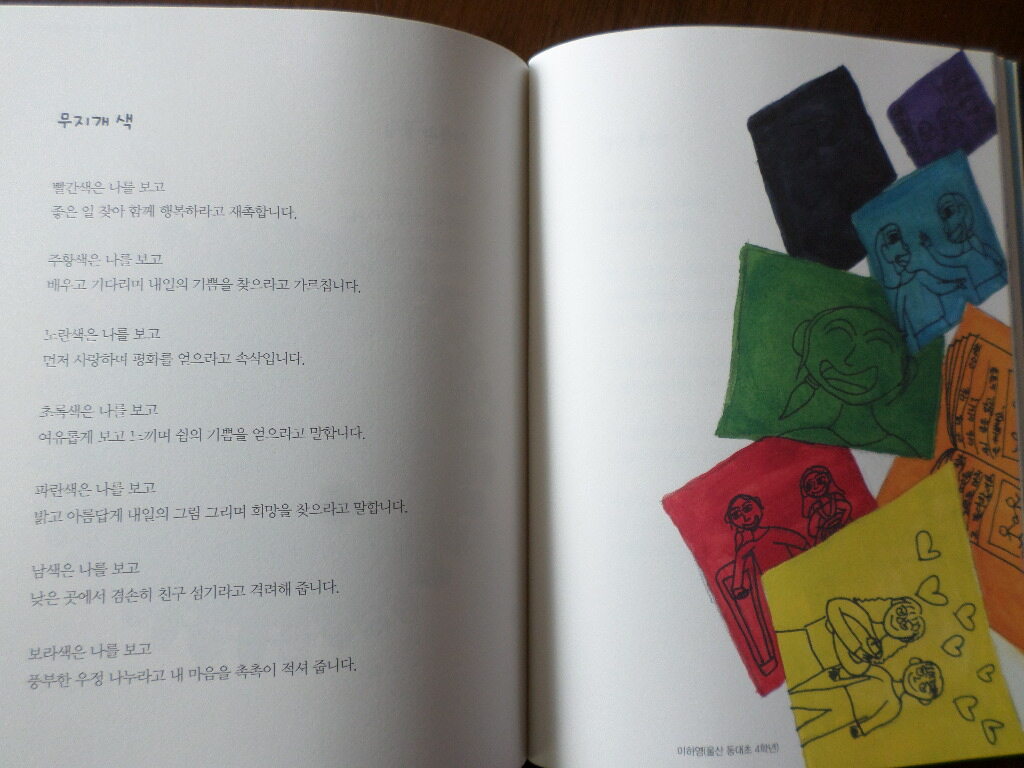 무지개 색
빨간색은 나를 보고
좋은 일 찾아 함께 행복하라고 재촉합니다.
주황색은 나를 보고
배우고 기다리며 내일의 기쁨을 찾으라고 가르칩니다.
노란색은 나를 보고
먼저 사랑하며 평화를 얻으라고 속삭입니다.
초록색은 나를 보고
여유롭게 보고 느끼며 쉼의 기쁨을 얻으라고 말합니다.
파란색은 나를 보고
밝고 아름답게 내일의 그림 그리며 희망을 찾으라고 말합니다.
남색은 나를 보고
낮은 곳에서 겸손히 친구 섬기라고 격려해 줍니다.
보라색은 나를 보고
풍부한 우정 나누라고 내 마음을 촉촉이 적셔 줍니다.
이하영(울산 동대초 4학년)